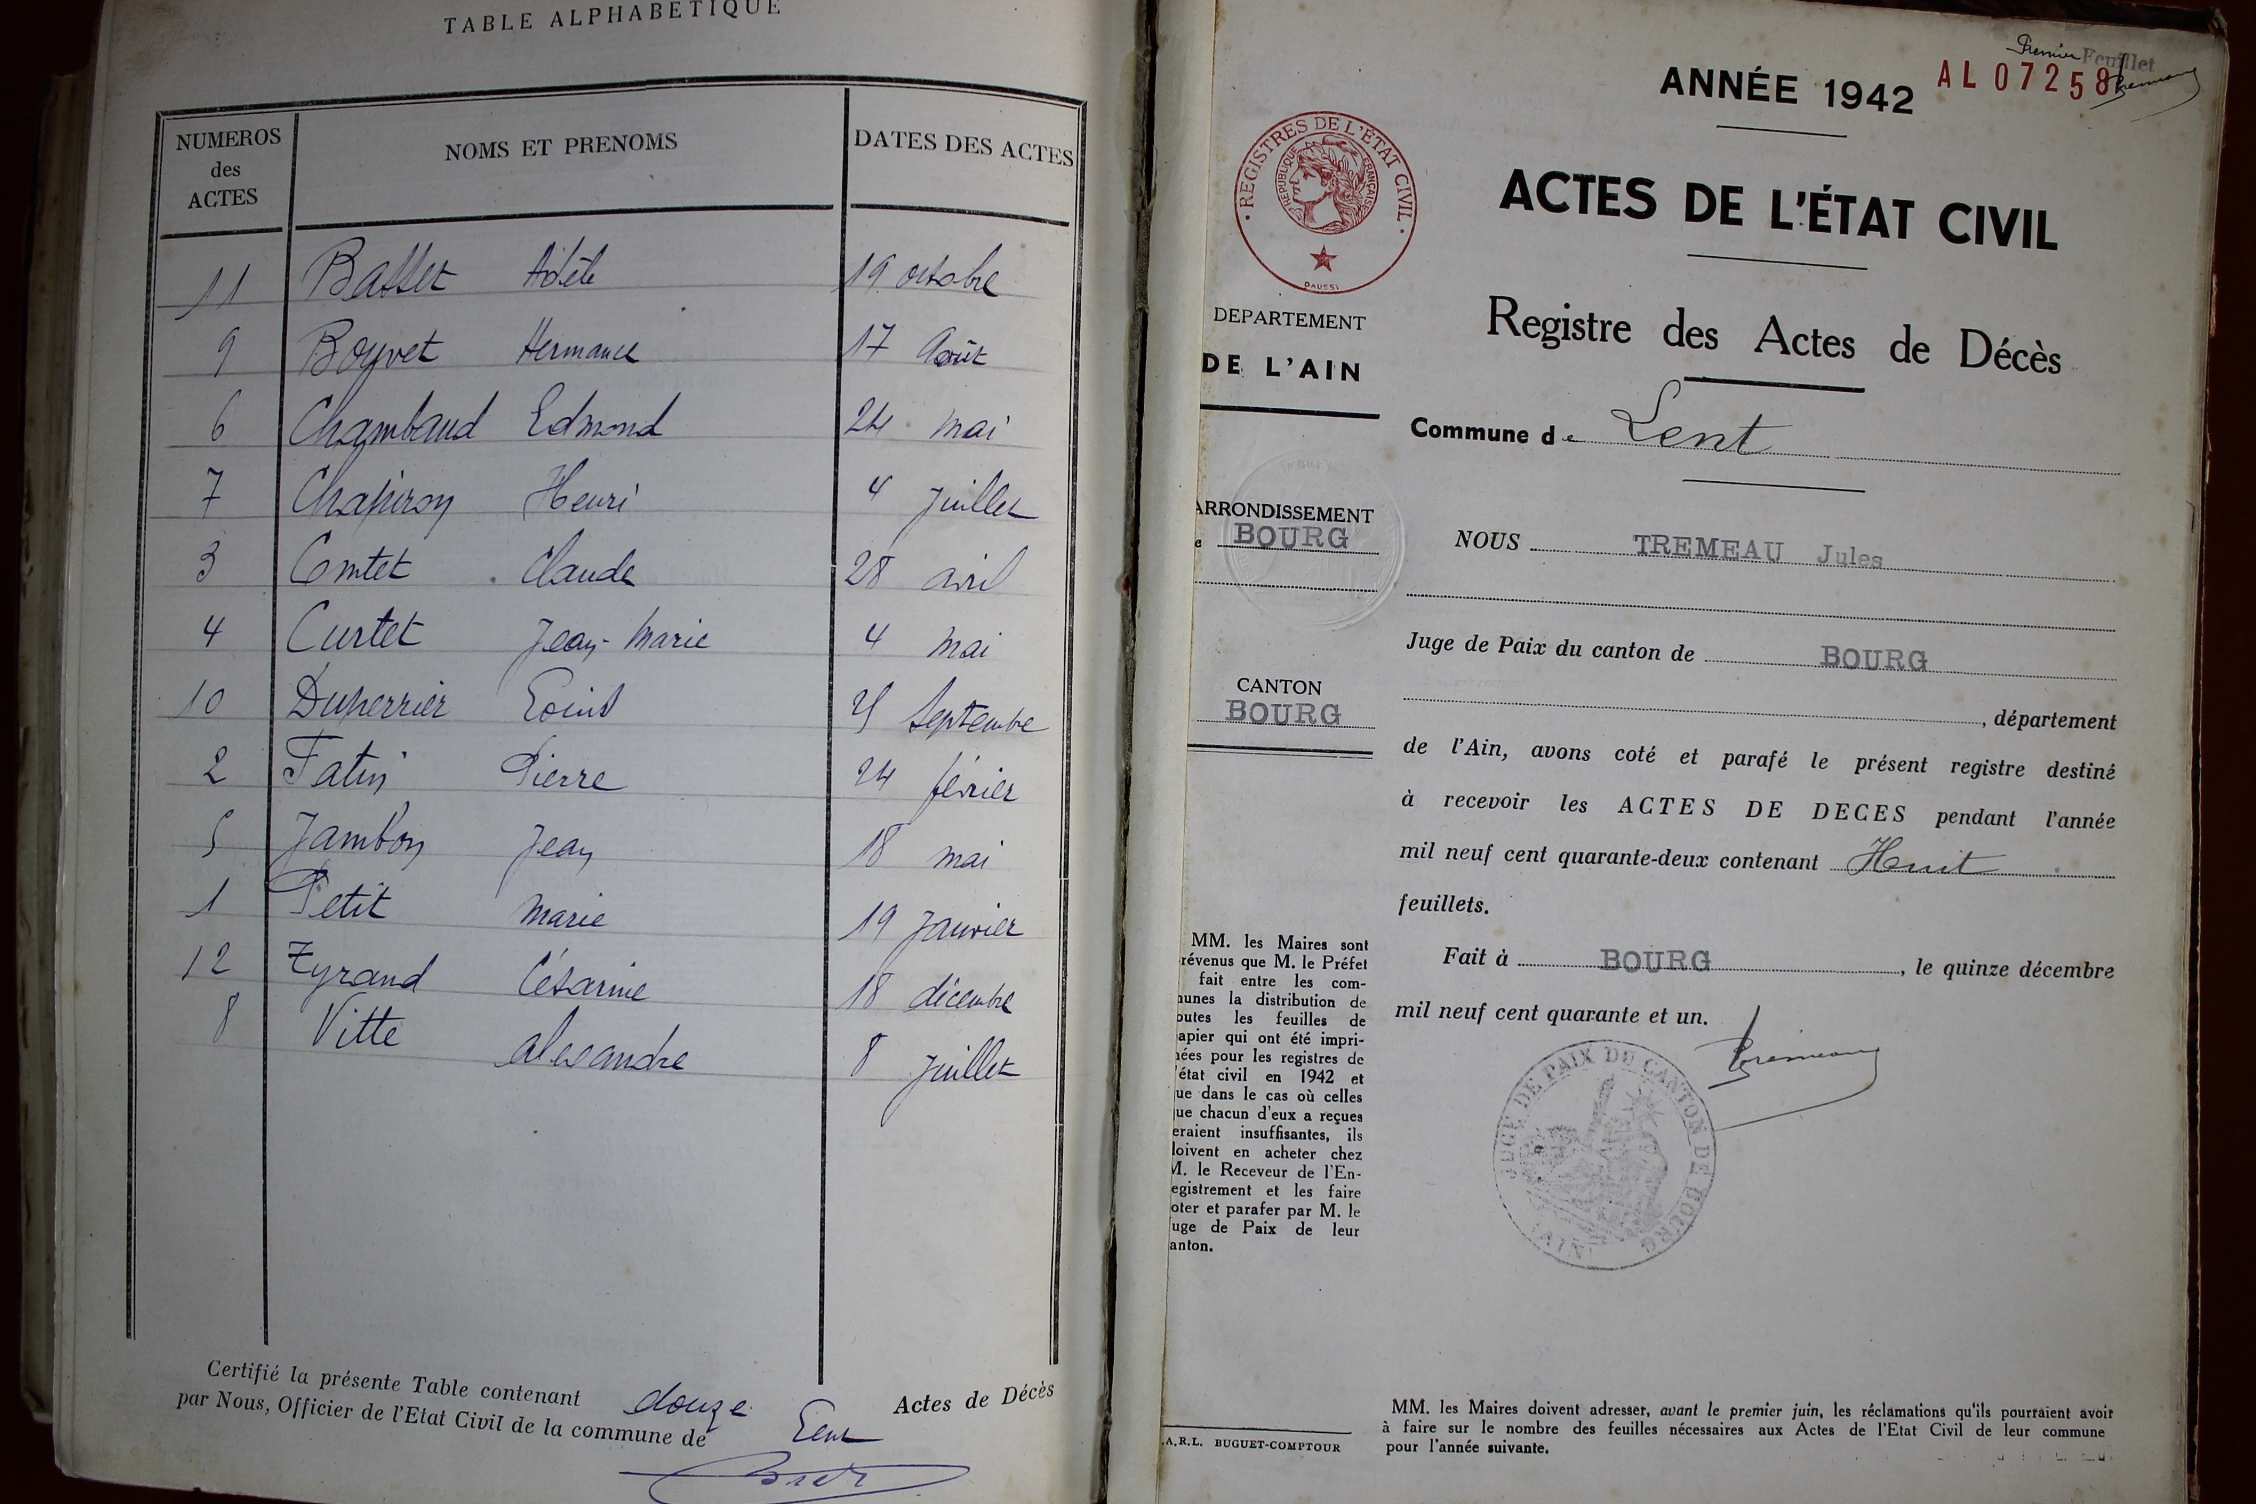 TABLE ALPHABETIQUE
NUMEROS des ACTES
NOMS ET PRENOMS
DATES DES ACTES
11 Basset Adèle 19 octobre
9 Boyvet Hermance 17 Août
6 Chambaud Edmond 24 mai
7 Chapiron Henri 4 Juillet
3 Comtet Claude 28 avril
4 Curtet Jean-Marie 4 mai
10 Duperrier Louis Septembre
2 Fatin Pierre 24 février
5 Jambon Jean 18 mai
1 Petit Marie 19 Janvier
12 Tyrand Césarine 18 décembre
8 Vitte Alexandre 8 Juillet
Certifié la présente Table contenant douze Actes de Décès
par Nous, Officier de l'Etat Civil de la commune de Lent
Premier Feuillet
ANNÉE 1942
AL 07258
REGISTRES DE L'ÉTAT CIVIL
REPUBLIQUE FRANÇAISE
DAUSSI
ACTES DE L'ÉTAT CIVIL
Registre des Actes de Décès
DEPARTEMENT
DE L'AIN
Commune de Lent
ARRONDISSEMENT
e BOURG
CANTON
BOURG
NOUS TREMEAU Jules
Juge de Paix du canton de BOURG
, département
de l'Ain, avons coté et parafé le présent registre destiné
à recevoir les ACTES DE DECES pendant l'année
mil neuf cent quarante-deux contenant Huit
feuillets.
Fait à BOURG, le quinze décembre
mil neuf cent quarante et un.
Tremeau
JUGE DE PAIX DU CANTON DE BOURG
AIN
MM. les Maires sont
révenus que M. le Préfet
fait entre les com-
unes la distribution de
outes les feuilles de
apier qui ont été impri-
ées pour les registres de
'état civil en 1942 et
ue dans le cas où celles
ue chacun d'eux a reçues
eraient insuffisantes, ils
doivent en acheter chez
M. le Receveur de l'En-
egistrement et les faire
oter et parafer par M. le
uge de Paix de leur
anton.
.A.R.L. BUGUET-COMPTOUR
MM. les Maires doivent adresser, avant le premier juin, les réclamations qu'ils pourraient avoir
à faire sur le nombre des feuilles nécessaires aux Actes de l'Etat Civil de leur commune
pour l'année suivante.